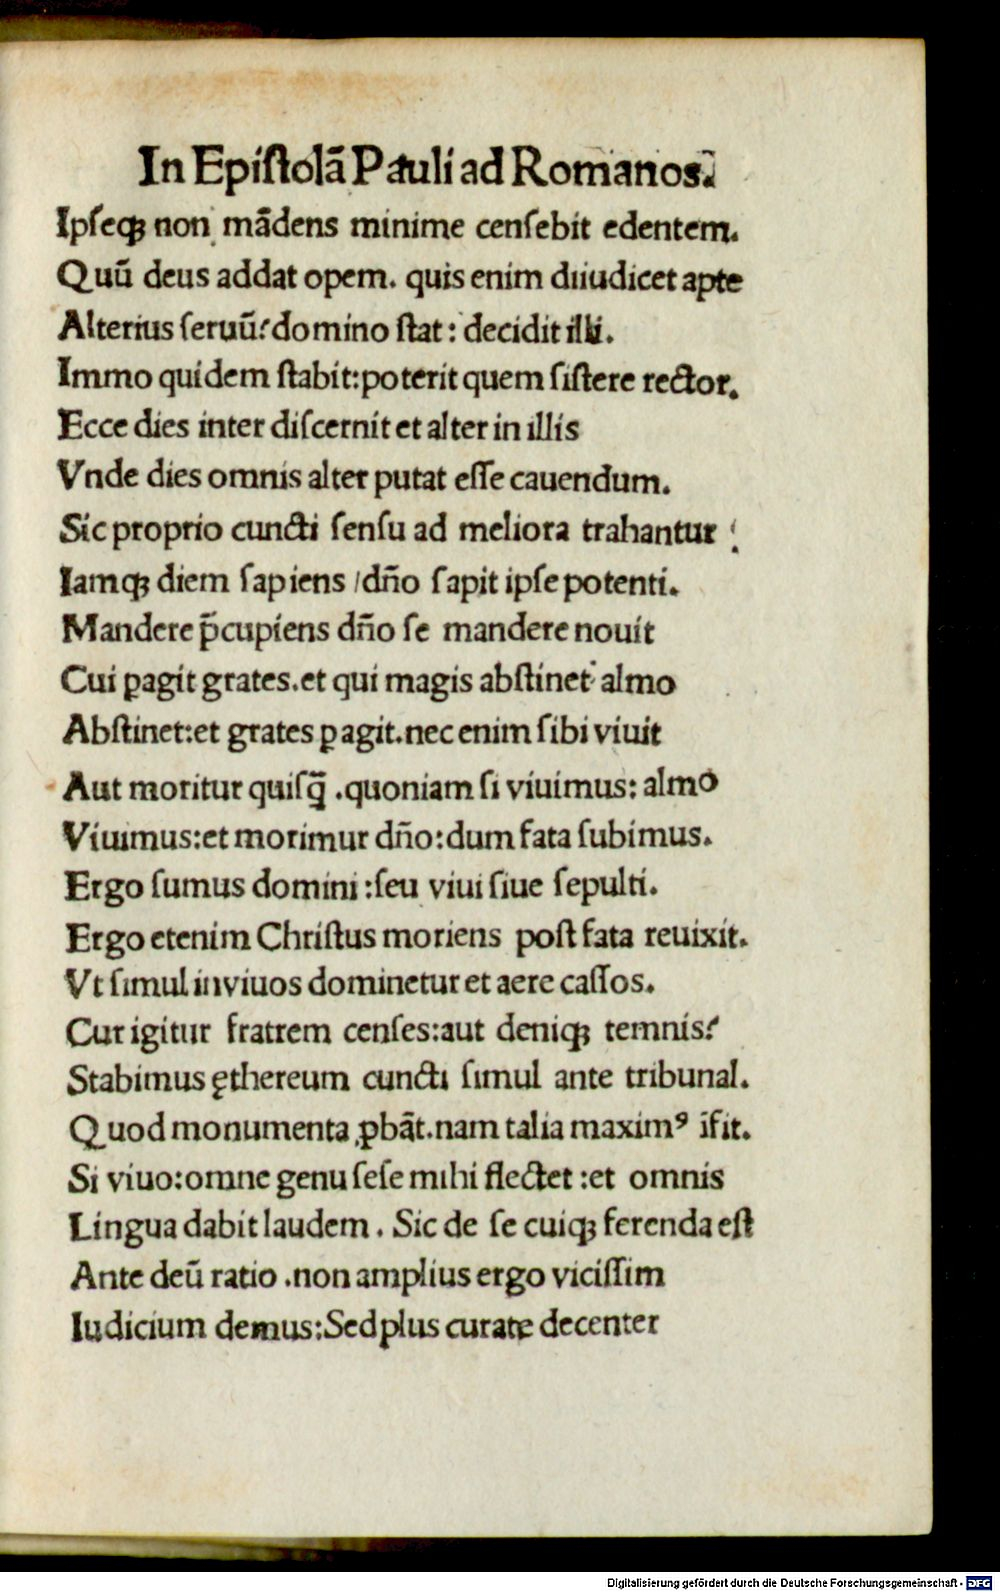 In Epiſtolā Pauli ad Romanos.
Ipſeqꝫ non mādens minime cenſebit edentem.
Quū deus addat opem. quis enim diiudicet apte
Alterius ſeruū? domino ſtat: decidit illi.
Immo quidem ſtabit: poterit quem ſiſtere rector.
Ecce dies inter diſcernit et alter in illis
Vnde dies omnis alter putat eſſe cauendum.
Sic proprio cuncti ſenſu ad meliora trahantur:
Iamqꝫ diem ſapiens / dn̄o ſapit ipſe potenti.
Mandere p̄cupiens dn̄o ſe mandere nouit
Cui ꝑagit grates. et qui magis abſtinet almo
Abſtinet: et grates ꝑagit. nec enim ſibi viuit
Aut moritur quiſq̄. quoniam ſi viuimus: almo
Viuimus: et morimur dn̄o: dum fata ſubimus.
Ergo ſumus domini: ſeu viui ſiue ſepulti.
Ergo etenim Chriſtus moriens poſt fata reuixit.
Vt ſimul in viuos dominetur et aere caſſos.
Cur igitur fratrem cenſes: aut deniqꝫ temnis?
Stabimus ęthereum cuncti ſimul ante tribunal.
Quod monumenta ꝓbāt. nam talia maximꝰ īfit.
Si viuo: omne genu ſeſe mihi flectet: et omnis
Lingua dabit laudem. Sic de ſe cuiqꝫ ferenda eſt
Ante deū ratio. non amplius ergo viciſſim
Iudicium demus: Sed plus curate decenter
Digitalisierung gefördert durch die Deutsche Forschungsgemeinschaft - DFG